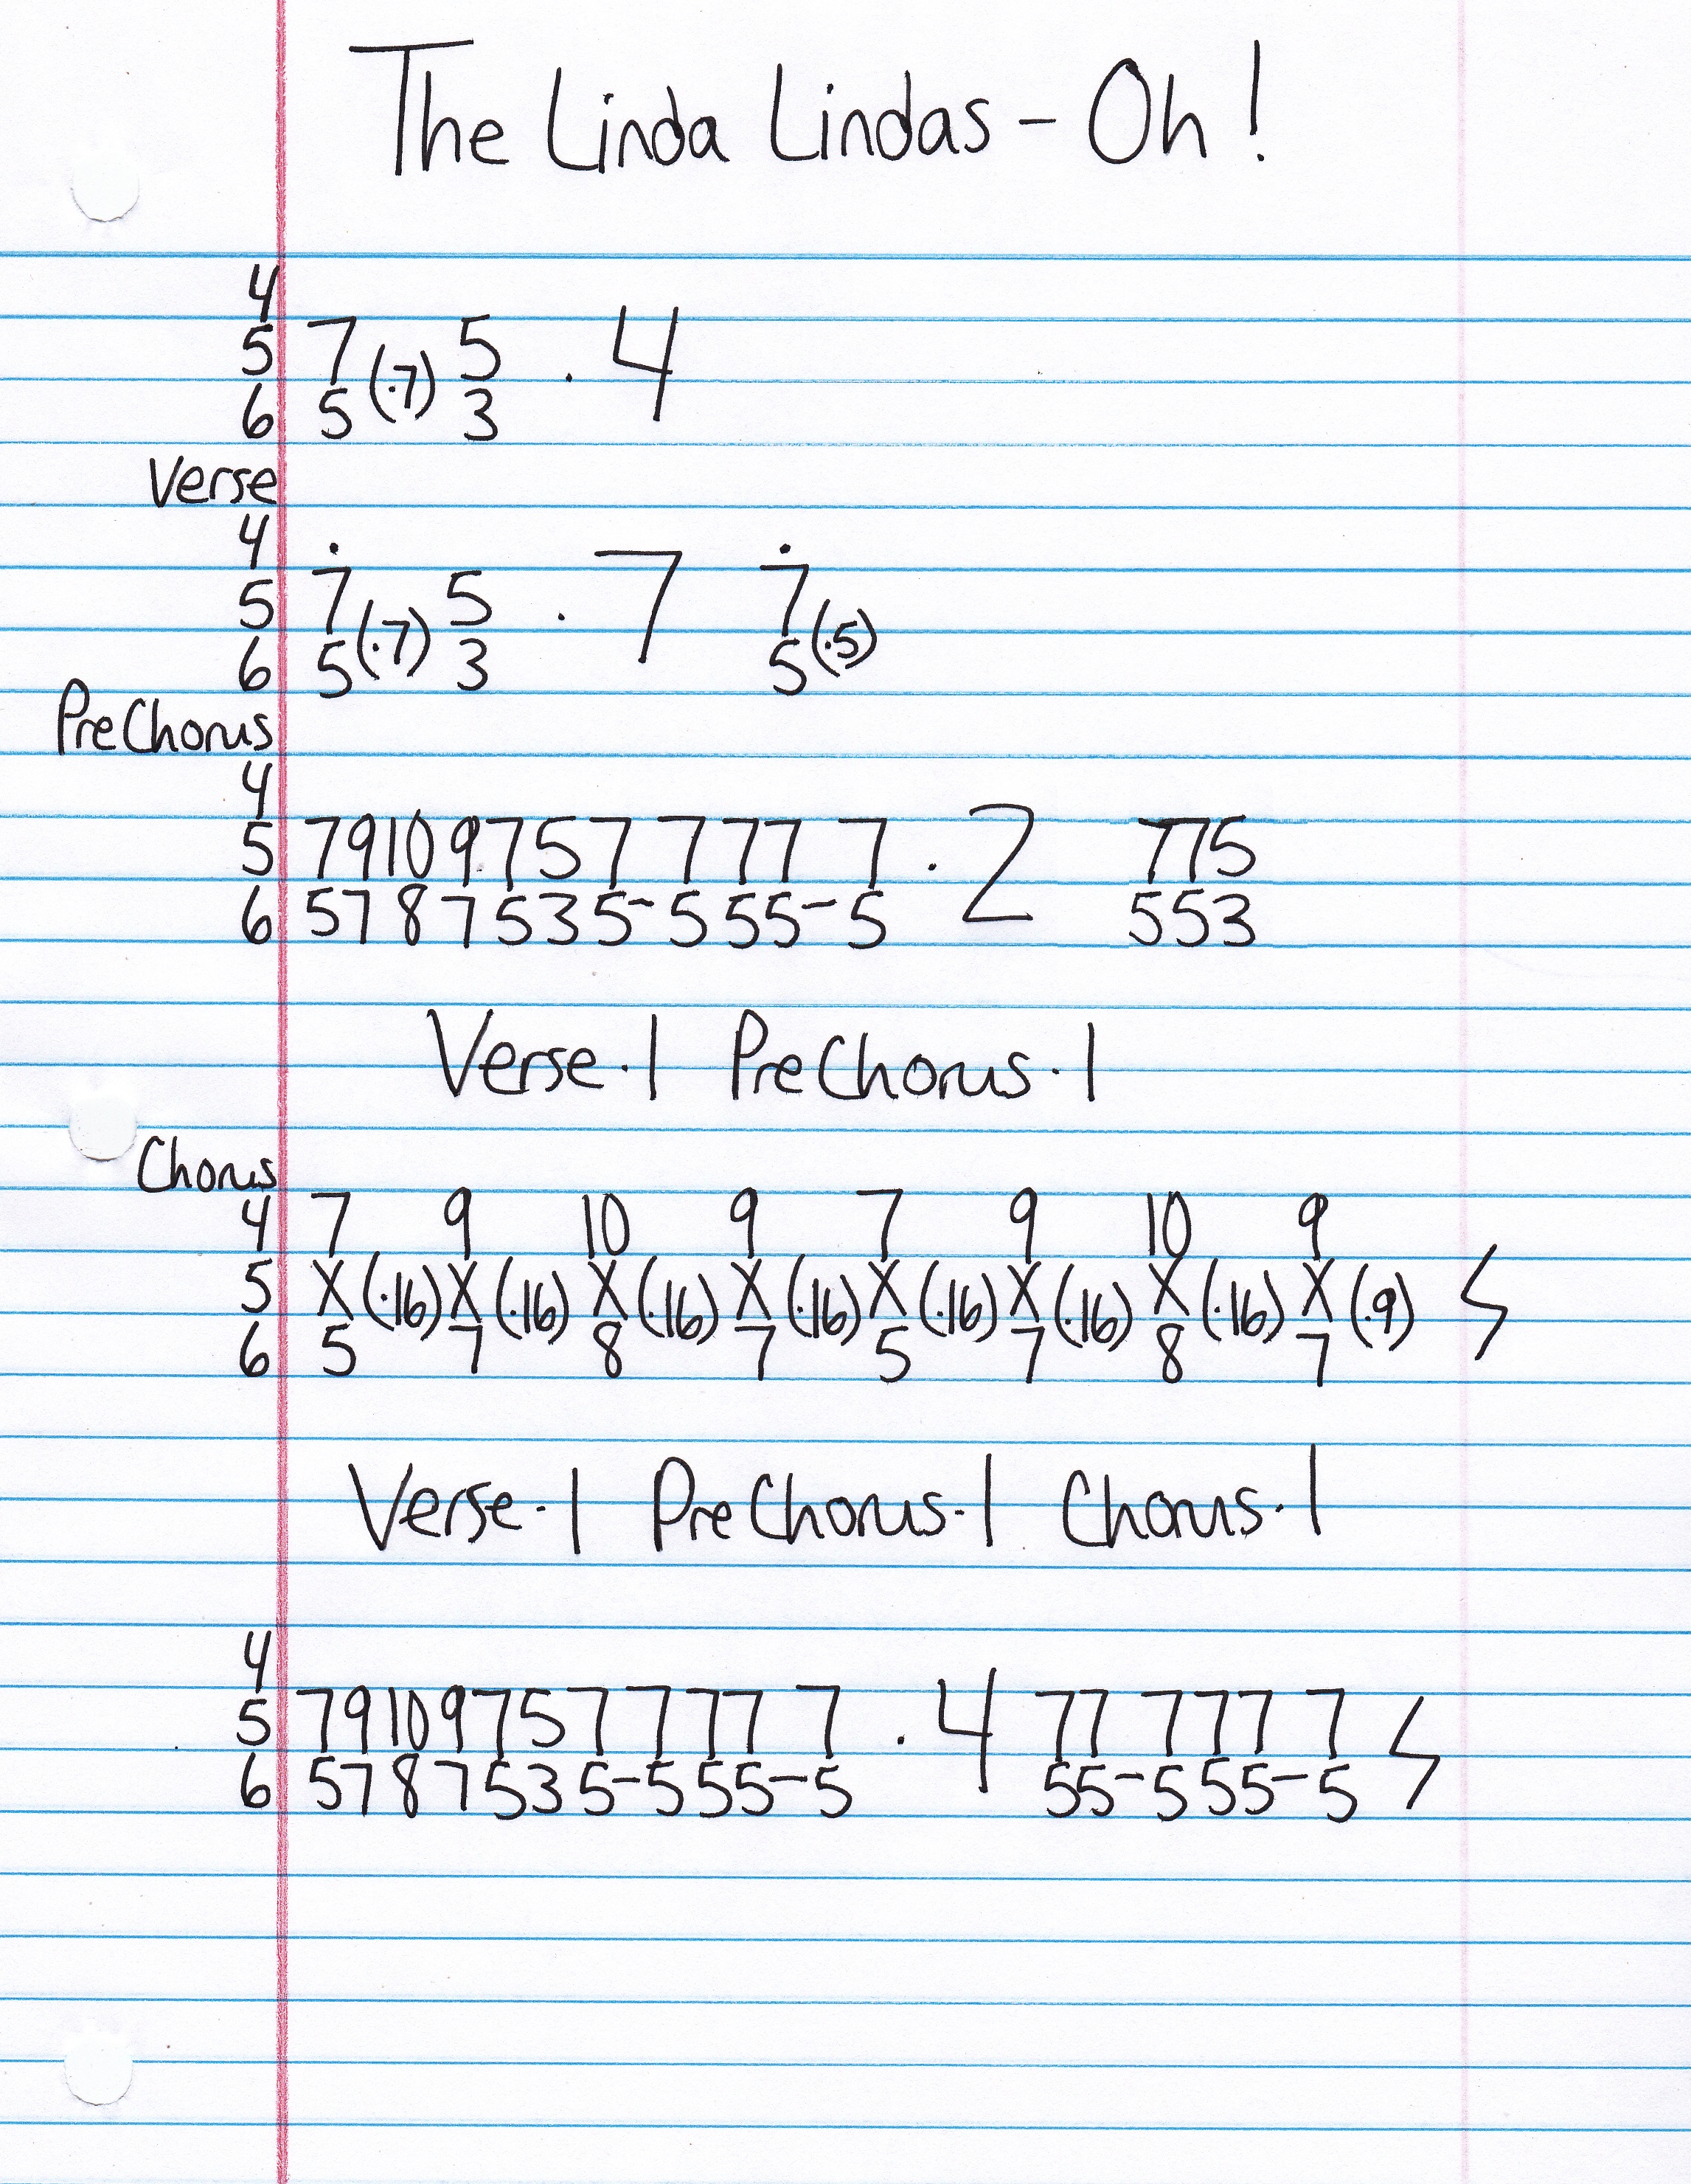 The Linda Lindas - Oh!
4
5 7 (.7) 5 . 4
6 5 3
Verse
4 . .
5 7 (.7) 5 . 7 7 (.5)
6 5 3 5
PreChorus
4
5 7 9 10 9 7 5 7 7 7 7 7 . 2 7 7 5
6 5 7 8 7 5 3 5 - 5 5 5 - 5 5 5 3
Verse . 1 PreChorus . 1
Chorus
4 7 9 10 9 7 9 10 9
5 X (.16) X (.16) X (.16) X (.16) X (.16) X (.16) X (.16) X (.9)
6 5 7 8 7 5 7 8 7
Verse . 1 PreChorus . 1 Chorus . 1
4
5 7 9 10 9 7 5 7 7 7 7 7 . 4 7 7 7 7 7 7
6 5 7 8 7 5 3 5 - 5 5 5 - 5 5 5 - 5 5 5 - 5